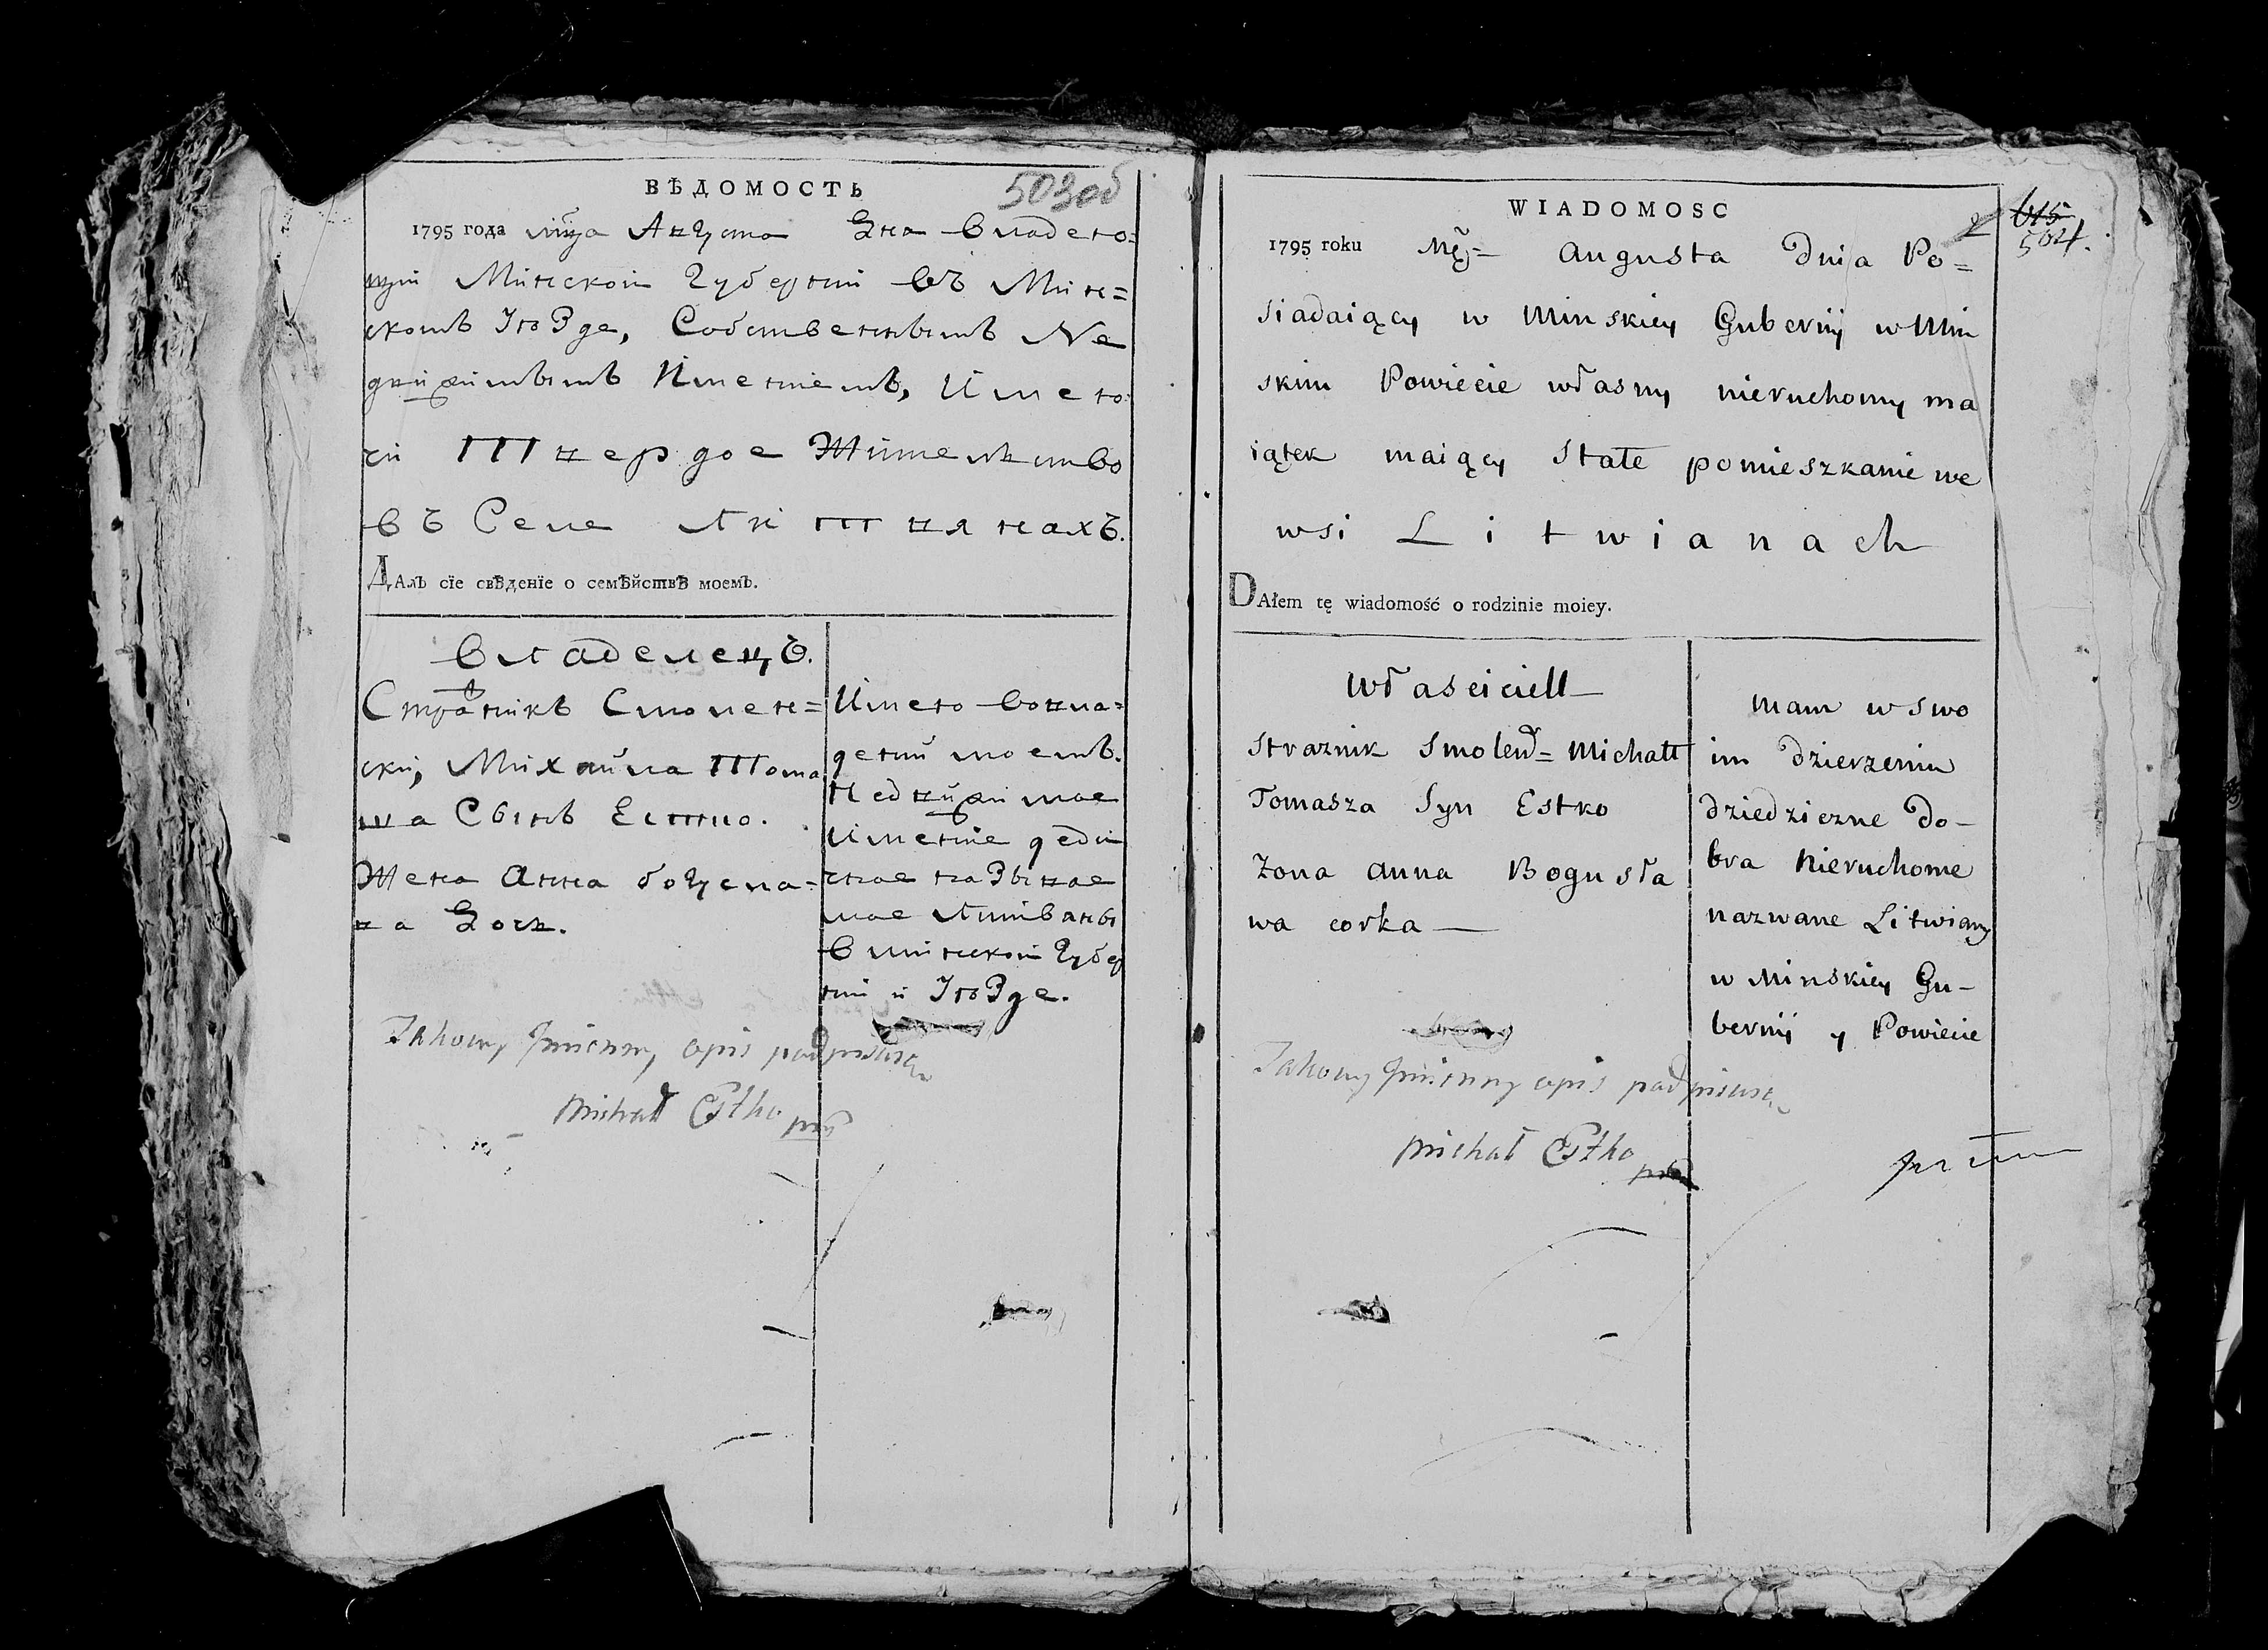 ВѢДОМОСТЬ
503об
1795 года мца Августа Дна владею=
щий Минской Губерний въ Мин=
скомъ Уѣзде, Собственнымъ Не
движимымъ Имениемъ, Имею
чи Твердое Жительство
въ Селе Литвянахъ.
Далъ сїе свѣденїе о семѣйствѣ моемъ.
Владелецъ.
Стражникъ Смолен=
ски, Михайла Тома
ша Сынъ Естко.
Жена Анна богусла=
ва Дочь.
Имею во вла=
дений моемъ.
Недвижимое
Имение деди
чное называе
мое Литвяны
в минской Губер
нии и Уѣзде.
Jakowy Jmienny opis podpisuię
Michał Estko
WIADOMOSC
615
504.
1795 roku Mca= Augusta Dnia Po=
siadaiący w Minskiey Gubernij w Min
skim Powiecie własny nieruchomy ma
iątek maiący Stałe pomieszkanie we
wsi Litwianach
DAłem tę wiadomość o rodzinie moiey.
Właściciell
Straznik Smoleń= Michałł
Tomasza Syn Estko
Zona Anna Bogusła
wa corka
Mam w swo
im dzierzeniu
dziedziczne Do-
bra Nieruchome
nazwane Litwiany
w Minskiey Gu-
bernij y Powiecie
Jakowy Jmienny opis podpisuię
Michał Estko